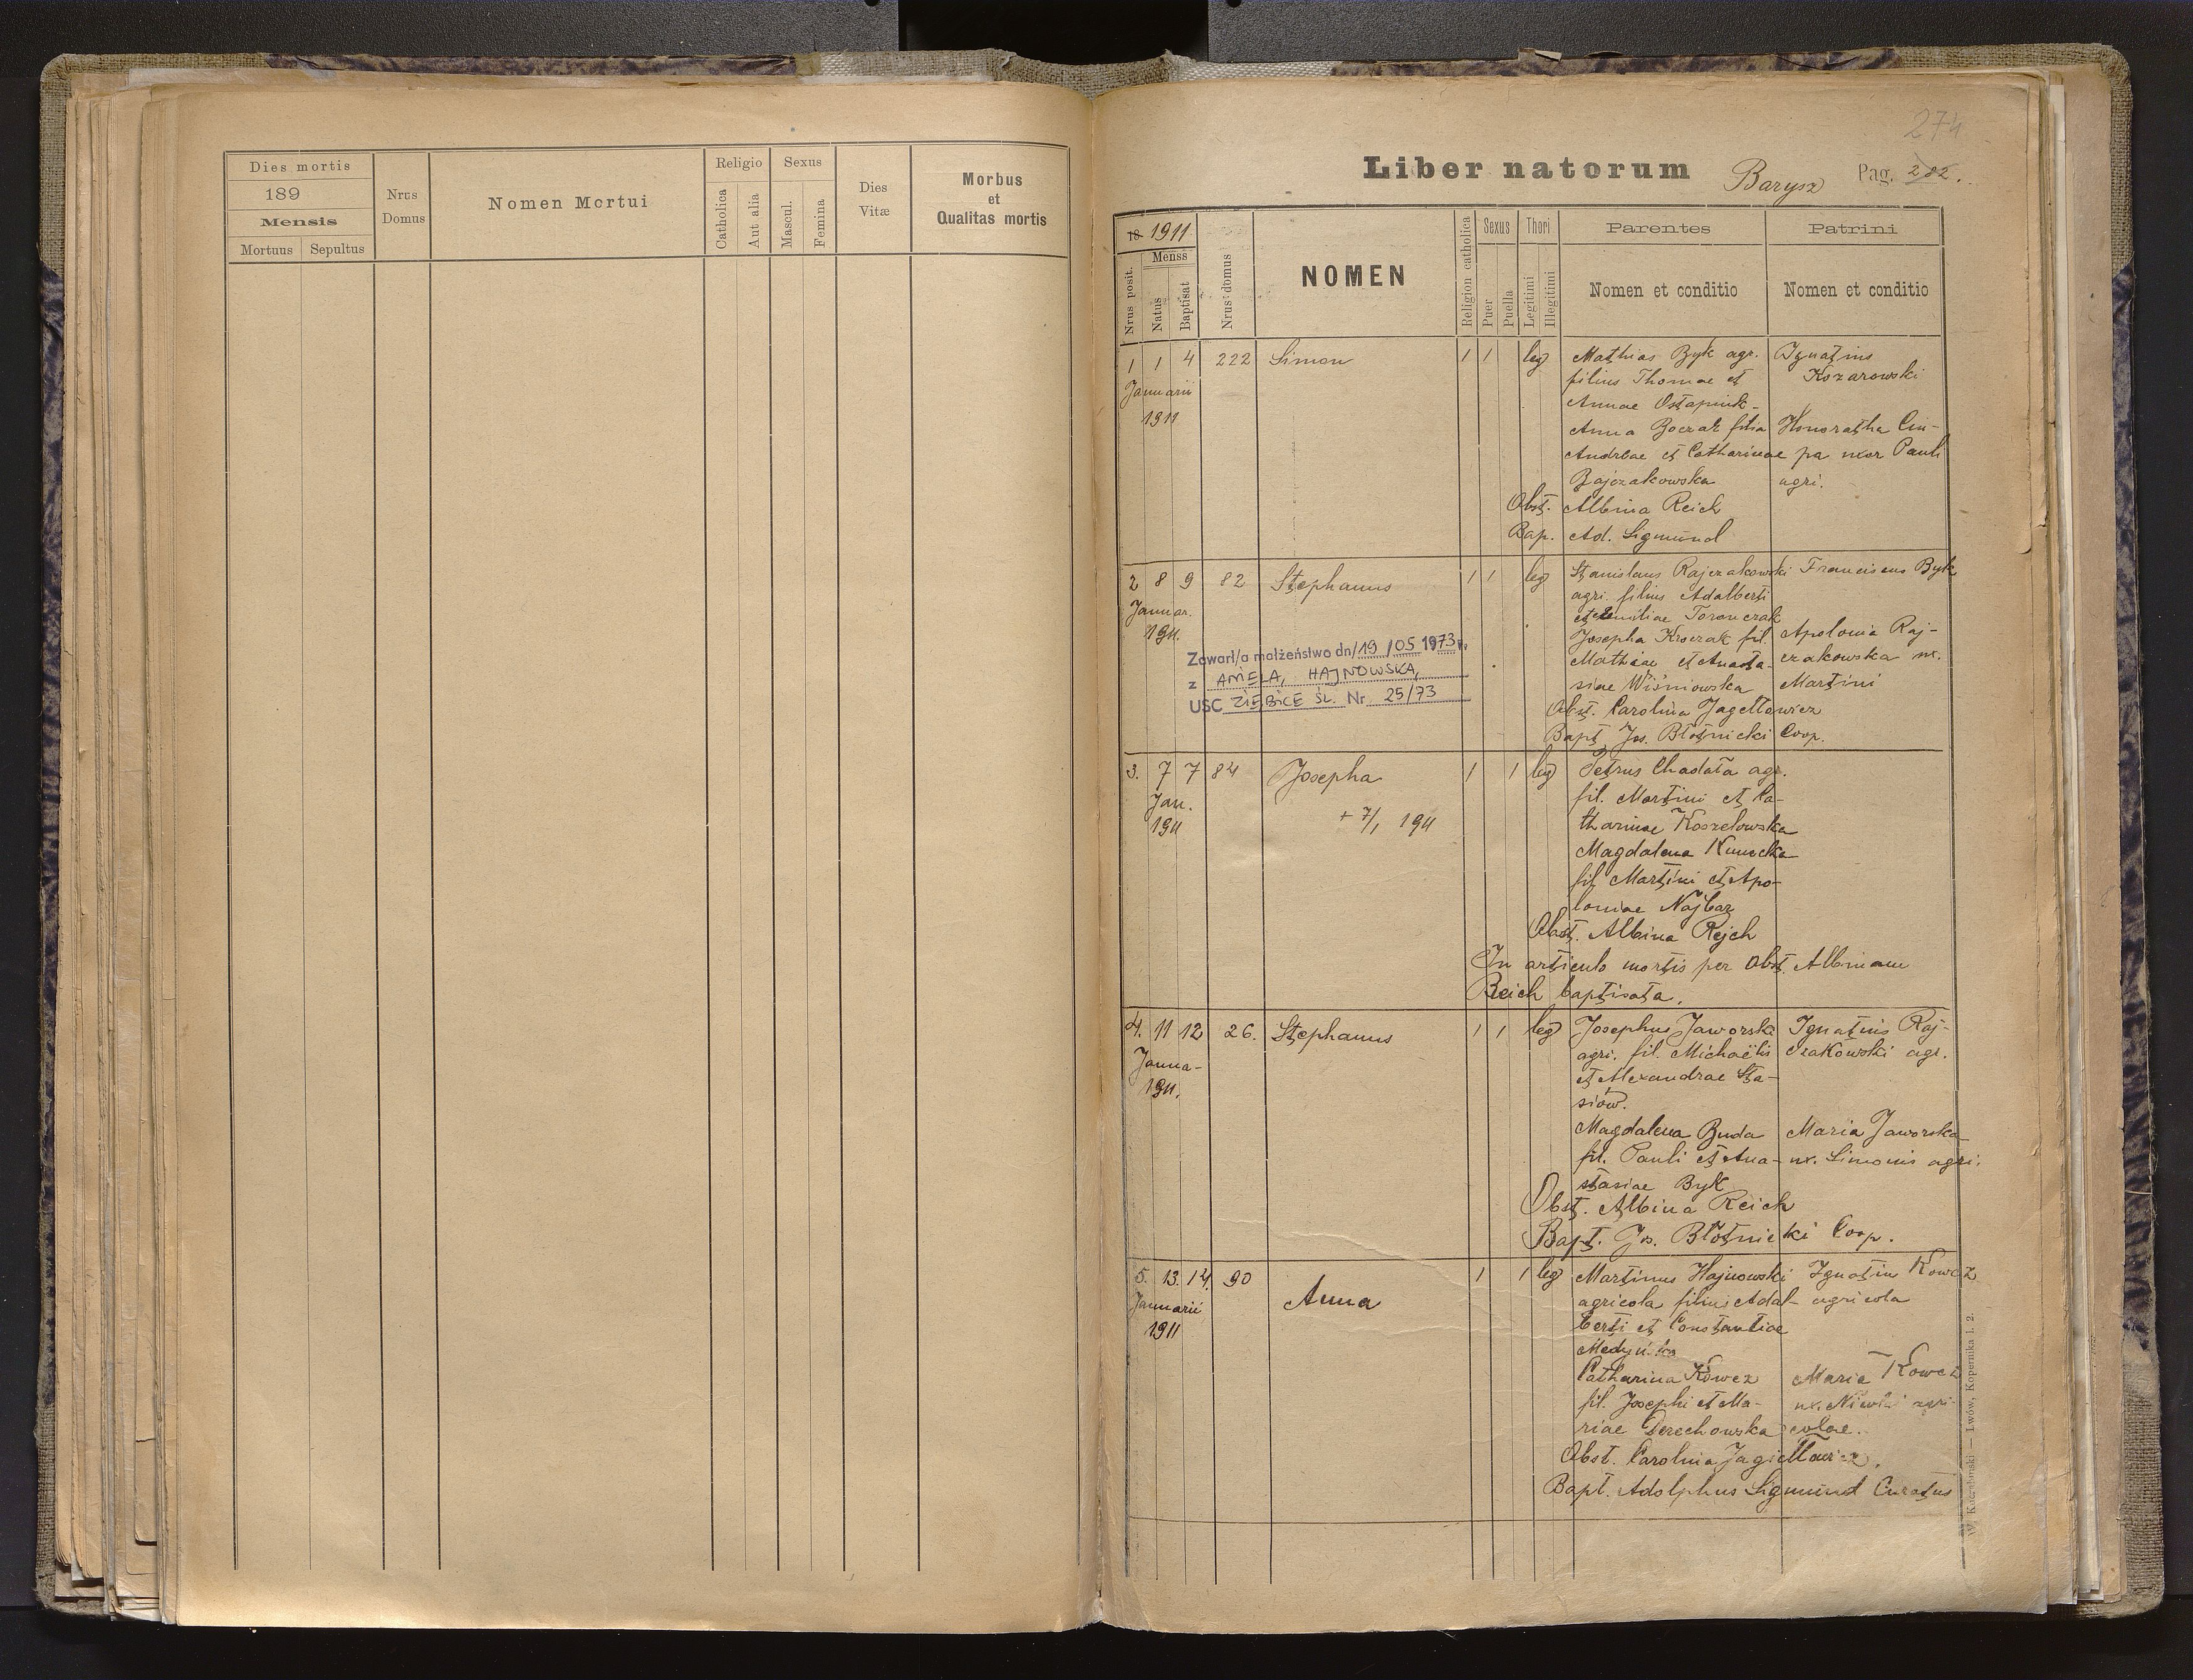 Dies mortis
189
Mensis
Mortuus Sepultus
Nrus Domus
Nomen Mortui
Religio
Catholica
Aut alia
Sexus
Mascul.
Femina
Dies Vitæ
Morbus
et
Qualitas mortis
274
Liber natorum Barysz Pag. 282.
18 1911
Menss
Nrus posit.
Natus
Baptisat
Nrus domus
NOMEN
Religion catholica
Sexus
Puer
Puella
Thori
Legitimi
Illegitimi
Parentes
Nomen et conditio
Patrini
Nomen et conditio
1 1 4 222 Simon 1 1 leg Mathias Byk agr. Ignatius
Januarii filius Thomae et Kozarowski
1911 Annae Ostapiuk-
Anna Boczar filia Honoratha Ciu-
Andreae et Catharinae pa uxor Pauli
Bajczakowska agri.
Obst. Albina Reich
Bap. Ad. Sigmund
2 8 9 82 Stephanus 1 1 leg Stanislaus Rajczakowski Franciscus Byk
Januar. agri. filius Adalberti
1911. et Emiliae Toronczak
Josepha Kroczak fil. Apolonia Raj-
Mathiae et Anasta- czakowska ux.
siae Wiśniowska Martini
Obst. Carolina Jagiełłowicz
Bapt Jos. Błotnicki Coop.
Zawarł/a małżeństwo dn/19/05 1973 r.
z ANIELA, HAJNOWSKA,
USC ZIĘBICE ŚL. Nr 25/73
3. 7 7 84 Josepha 1 1 leg Petrus Chadała agr.
Jan. + 7/1 1911 fil. Martini et Ca-
1911 tharinae Koszelowska
Magdalena Kunecka
fil Martini et Apo-
loniae Najbar
Obst. Albina Rejch
In articulo mortis per Obst. Albinam
Reich baptisata.
4. 11 12 26. Stephanus 1 1 leg Josephus Jaworski Ignatius Raj-
Janua- agri. fil. Michaëlis czakowski agr.
1911. et Alexandrae Sta-
siów.
Magdalena Buda Maria Jaworska
fil. Pauli et Ana- ux. Simonis agri.
stasiae Byk
Obst. Albina Reich
Bapt. Jos. Błotnicki Coop.
5. 13. 14. 90 Anna 1 1 leg Martinus Hajnowski Ignatius Kowcz
Januarii agricola filius Adal- agricola
1911 berti et Constantiae
Medyńska
Catharina Kowcz Maria Kowcz
fil. Josephi et Ma- ux. Nicolai agri-
riae Derechowska colae.
Obst. Carolina Jagiełłowicz.
Bapt. Adolphus Sigmund Curatus
Lwów, Kopernika l. 2.